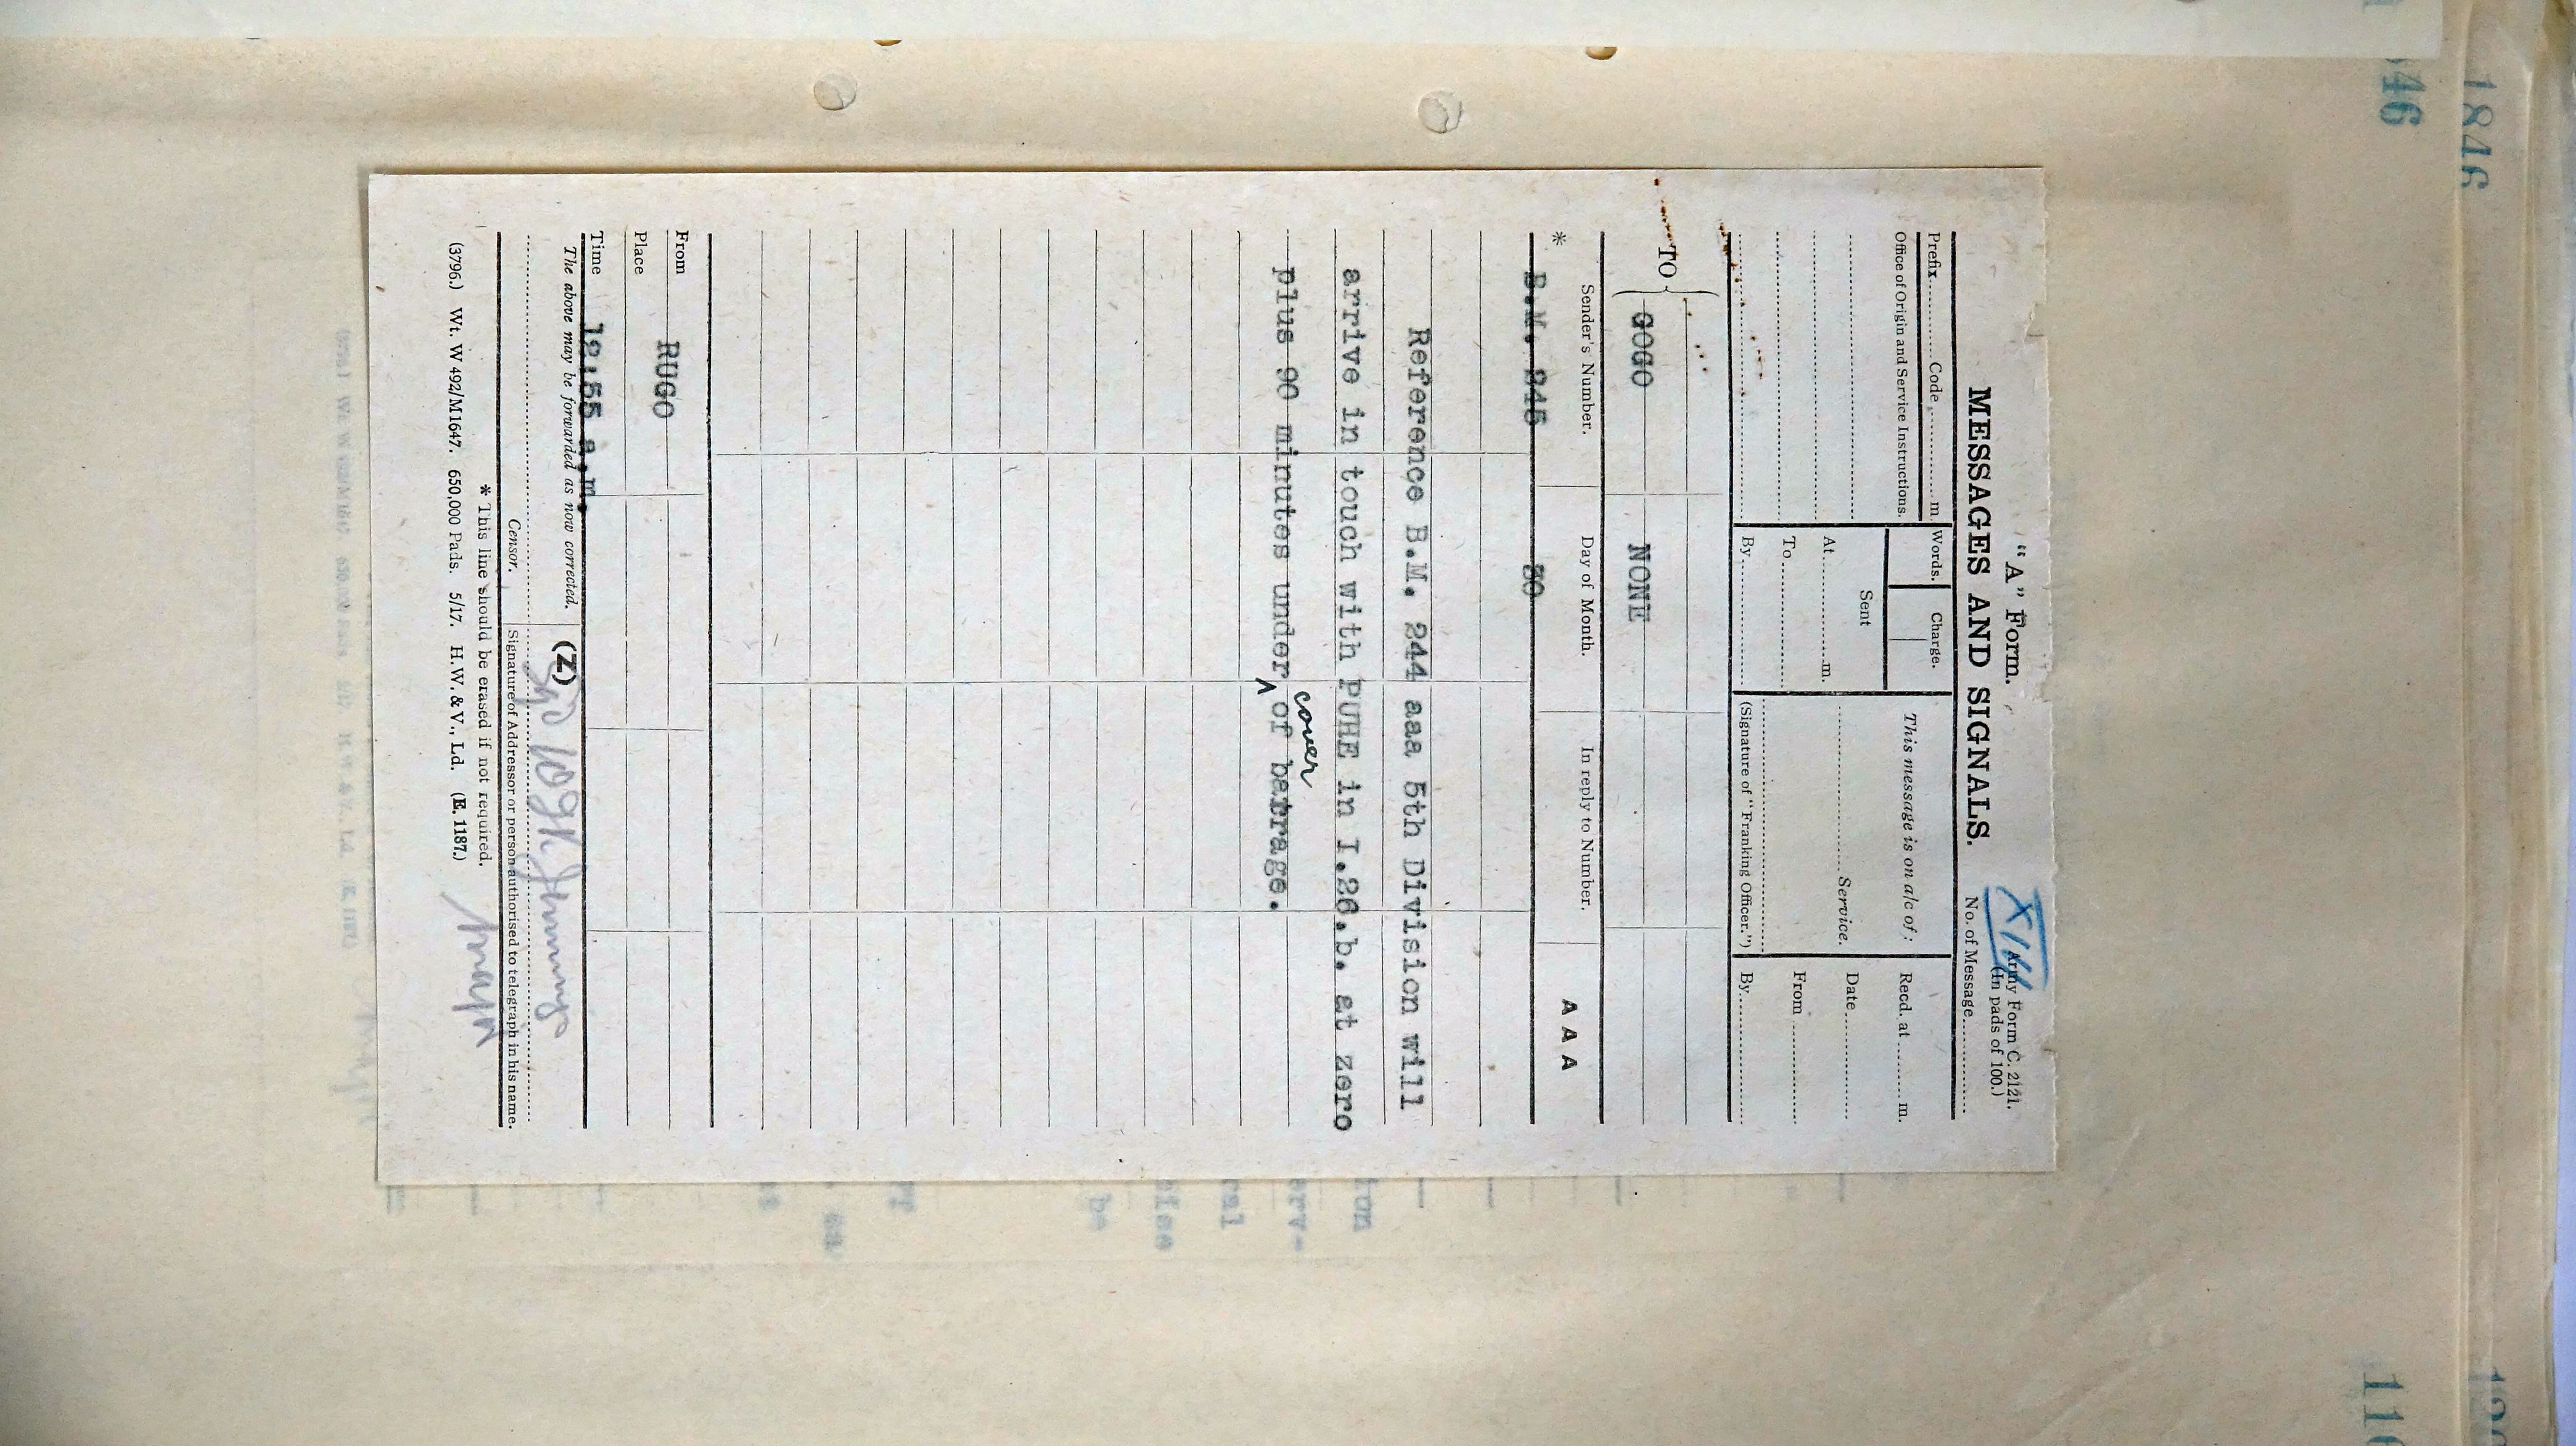 "A" Form.
MESSAGES AND SIGNALS.
Army Form C. 2121.
(In pads of 100.)
No. of Message..........
Prefix.......... Code .......... m.
Office of Origin and Service Instructions.
Words.
Charge.
Sent
At .......... m.
To ..........
By ..........
This message is on a/c of :
.......... Service.
(Signature of "Franking Officer.")
Recd. at ...... m.
Date..........
From ..........
By..........
TO
GOGO NONE
Sender's Number. Day of Month. In reply to Number.
* B.M. 245 30 A A A
Reference B.M. 244 aaa 5th Division will
arrive in touch with PUHE in I.26.b. at zero
cover
plus 90 minutes under of barrage.
From RUGO
Place
Time 12:55 a.m.
The above may be forwarded as now corrected. (Z)
Censor. Signature of Addressor or person authorised to telegraph in his name.
* This line should be erased if not required.
(3796.) Wt. W 492/M1647. 650,000 Pads. 5/17. H.W. & V., Ld. (E. 1187.)
1846
46
ion
erv-
ral
be